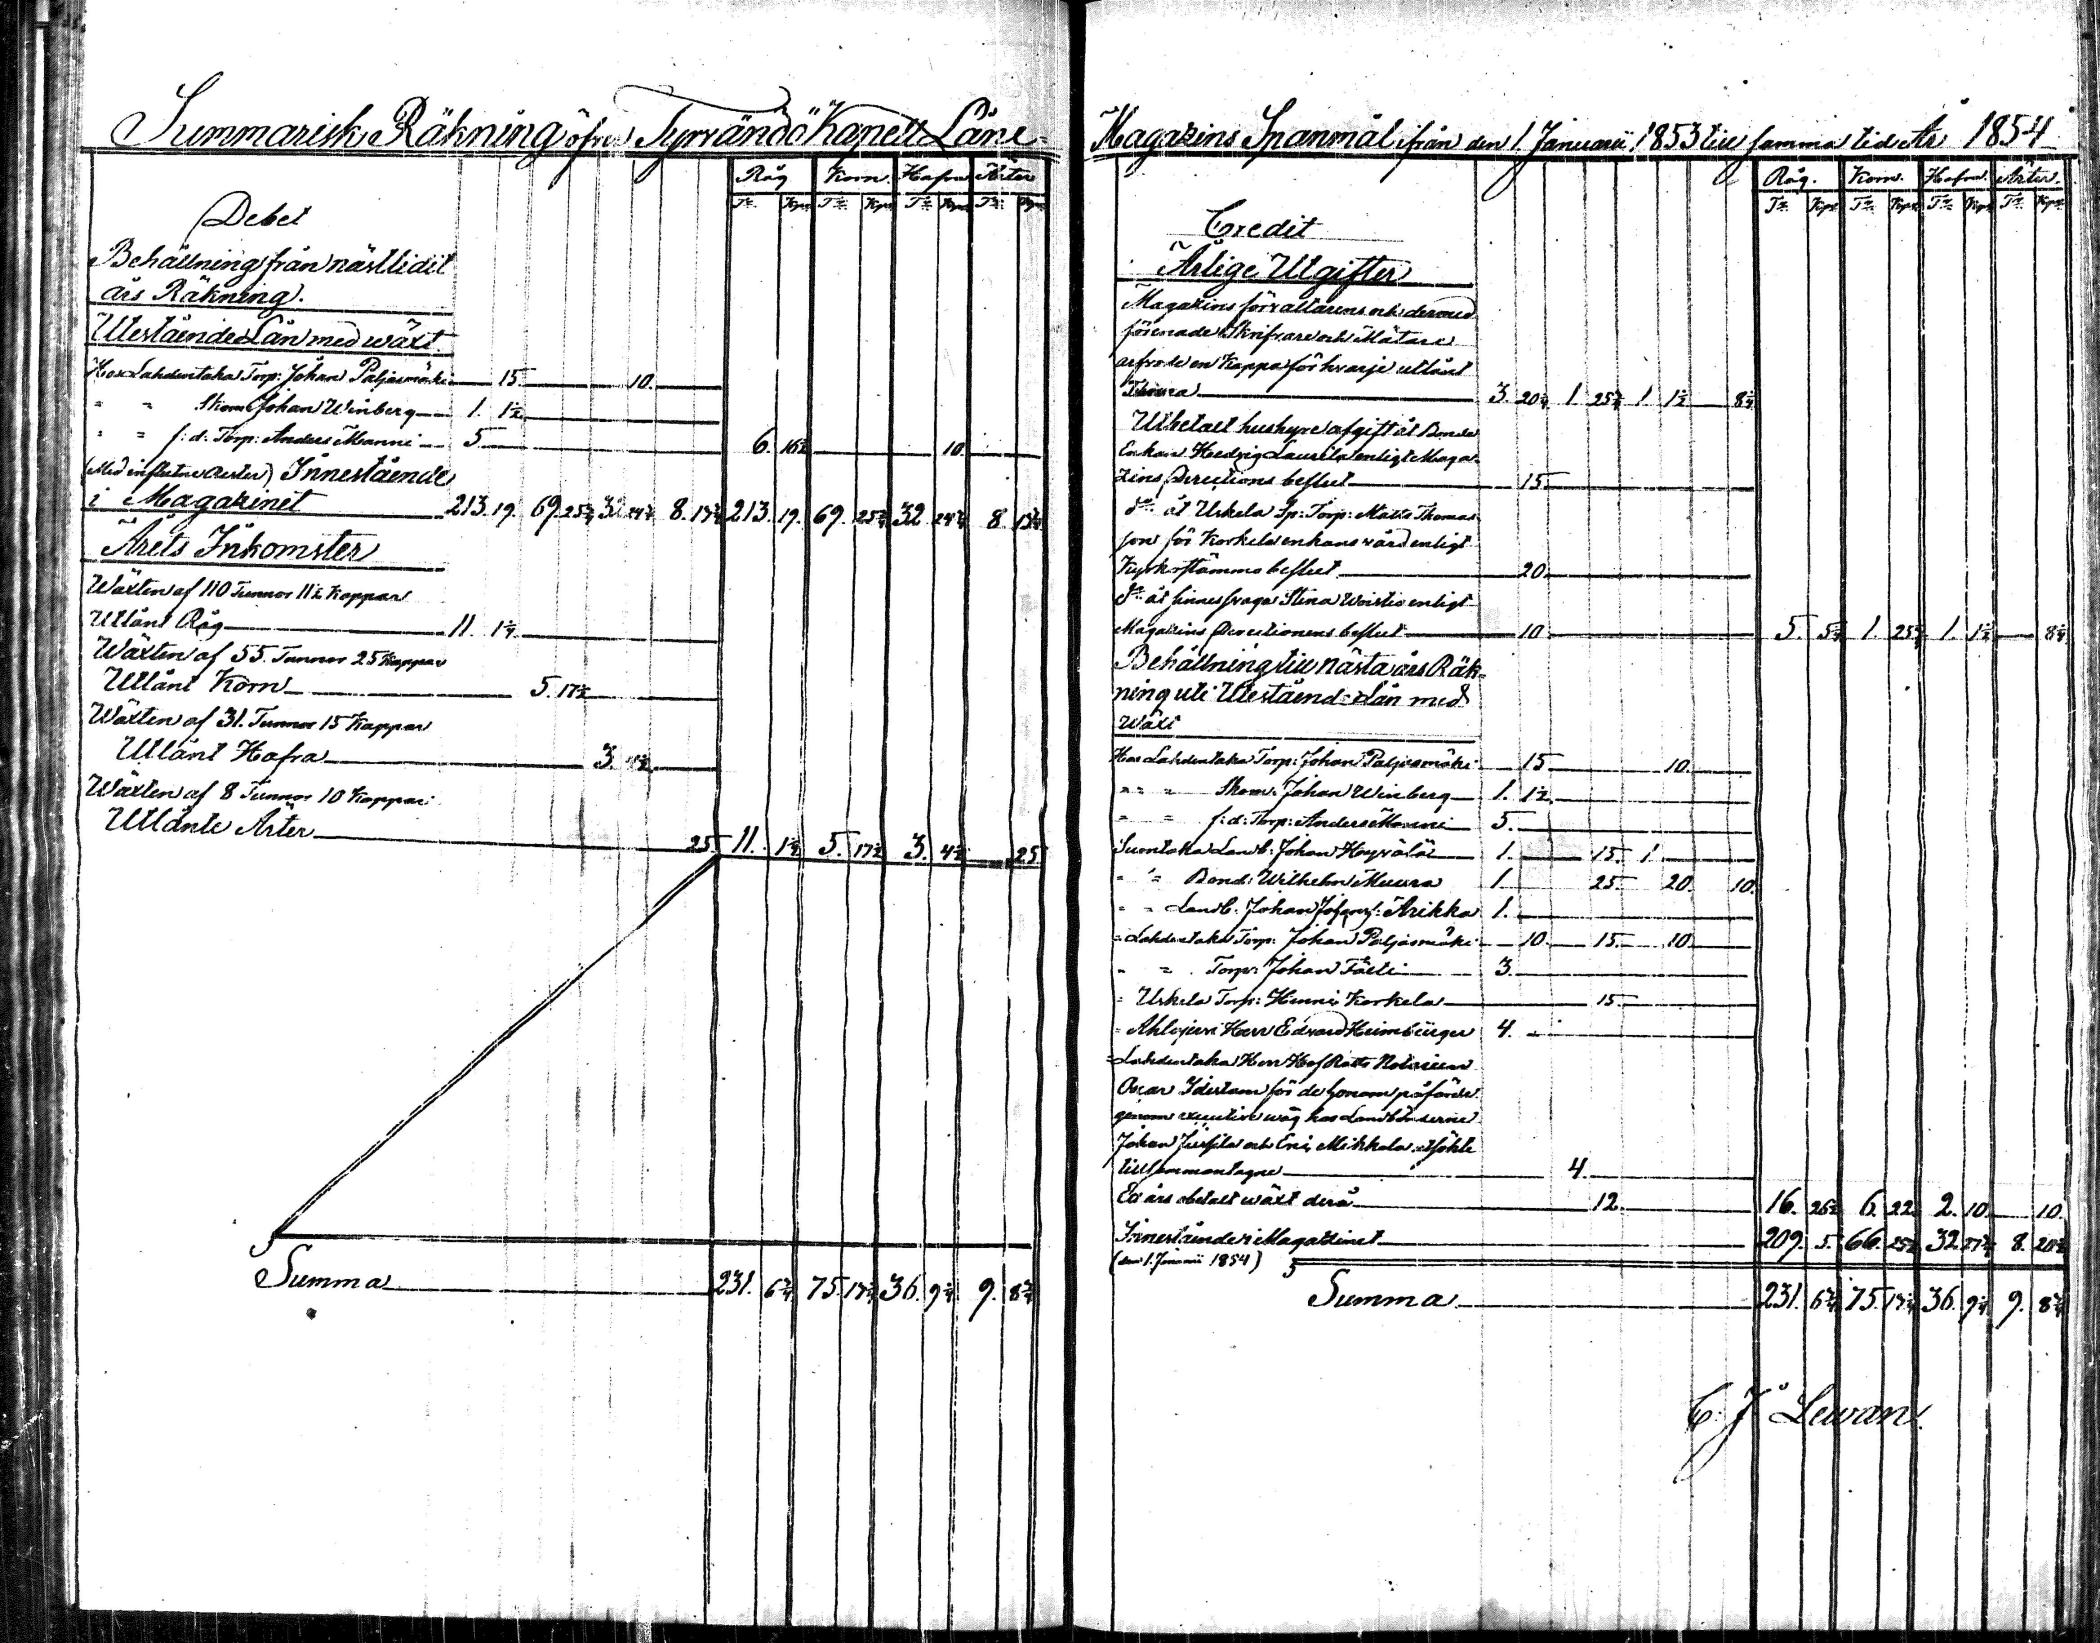 Summarisk Räkning öfver Tyrvändö Kapell Låne-
Råg Korn Hafra Ärter
Tr Kpr Tr Kpr Tr Kpr Tr Kpr
Debet
Behållning från nästlidit
års Räkning.
Utestående Lån med wäxt.
Hos Lahdentaka Torp: Johan Paljasmäki 15. 10.
" " Skom: Johan Winberg 1. 1½
" = f: d: Torp: Anders Manni 5. 6. 16½ 10.
(Med influtne Rester) Innestående
i Magazinet 213. 19. 69. 25¾ 32 24¾ 8. 15¾ 213. 19. 69. 25¾ 32 24¾ 8 15¾
Årets Inkomster
Wäxten af 110 Tunnor 11½ Kappar
Utlånt Råg 11. 1¼
Wäxten af 55. Tunnor 25 Kappar
Utlånt Korn 5. 17½
Wäxten af 31. Tunnor 15 Kappar
Utlånt Hafra 3. 4½
Wäxten af 8 Tunnor 10 Kappar
Utlånte Ärter 25. 11. 1¼ 5. 17½ 3. 4½ 25.
Summa 231. 6¾ 75. 13¼ 36. 9¼ 9. 8¾
Magazins Spanmål ifrån den 1. Januarii 1853 till samma tid År 1854
Råg. Korn. Hafra. Ärter.
Tr Kpr Tr Kpr Tr Kpr Tr Kpr
Credit
Årlige Utgifter
Magazins förvaltarens och dermed
förenade Skrifvare och Mätare
arfvode en Kappa för hvarje utlånt
Tunna 3. 20¼ 1. 25¾ 1 1½ 8¼
Utbetalt hushyre afgift åt Bonde
Enkan Hedvig Laurila enligt Maga-
zins Directions beslut 15
do åt Uskela Sp: Torp: Matts Thomas-
son för Korkela enkans vård enligt
Kyrkostämmo beslut 20.
do åt sinnessvaga Stina enligt
Magazins Directionens beslut 10 5. 5¼ 1. 25¾ 1. 1½ 8¼
Behållning till nästa års Räk-
ning uti Utestående Lån med
Wäxt
Hos Lahdentaka Torp: Johan Paljasmäki 15 10.
" = " Skom: Johan Winberg 1. 1½
" = f: d: Torp: Anders Manni 5.
Suontaka Landb: Johan 1. 15. 1
" " Bond: Wilhelm Muura 1 25. 20. 10.
" = Landb: Johan Arikka 1.
= Lahdentaka Torp: Johan Paljasmäki 10. 15. 10
" = Torp: Johan Fälti 3.
= Uskela Torp: Korkela 15.
= Ahlajervi Herr Edvard Heimbürger 4.
= Lahdentaka Herr Hof Rätts Notarien
Oscar Idestam för de honom påförde
genom executive wäg hos Landbönderne
Johan och Eric Mikkola
tillsammantagne 4.
Ett års obetalt wäxt derå 12. 16. 26½ 6. 22. 2. 10. 10.
Innestående i Magazinet 209. 5. 66. 25½ 32. 27¾ 8. 20½
(den 1. Januarii 1854)
Summa 231. 6¾ 75. 13¼ 36. 9¼ 9. 8¾
C. J. Lewan.